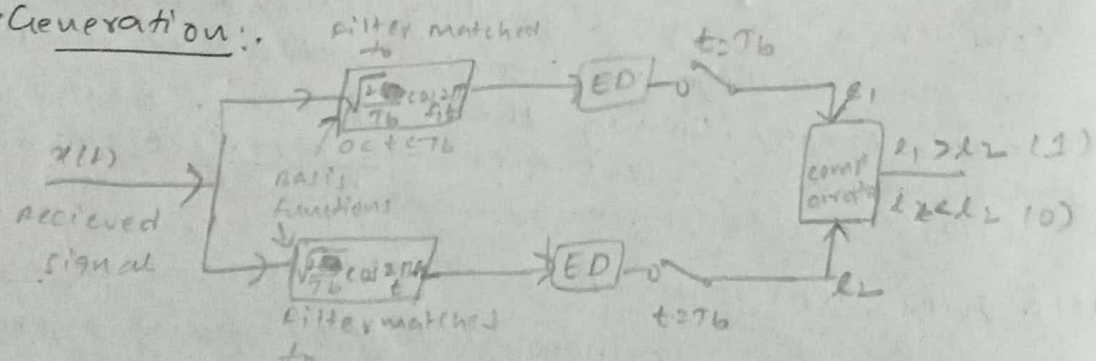 Generation:.
Filter matched
to
t=Tb
√2/Tb cos2π
f1t
ED
l1
0<t<Tb
x(t)
Recieved
signal
Basis
functions
comp
arator
l1>l2 (1)
l2 (0)
√2/Tb cos2π
t
ED
l2
t=Tb
Filter matched
to